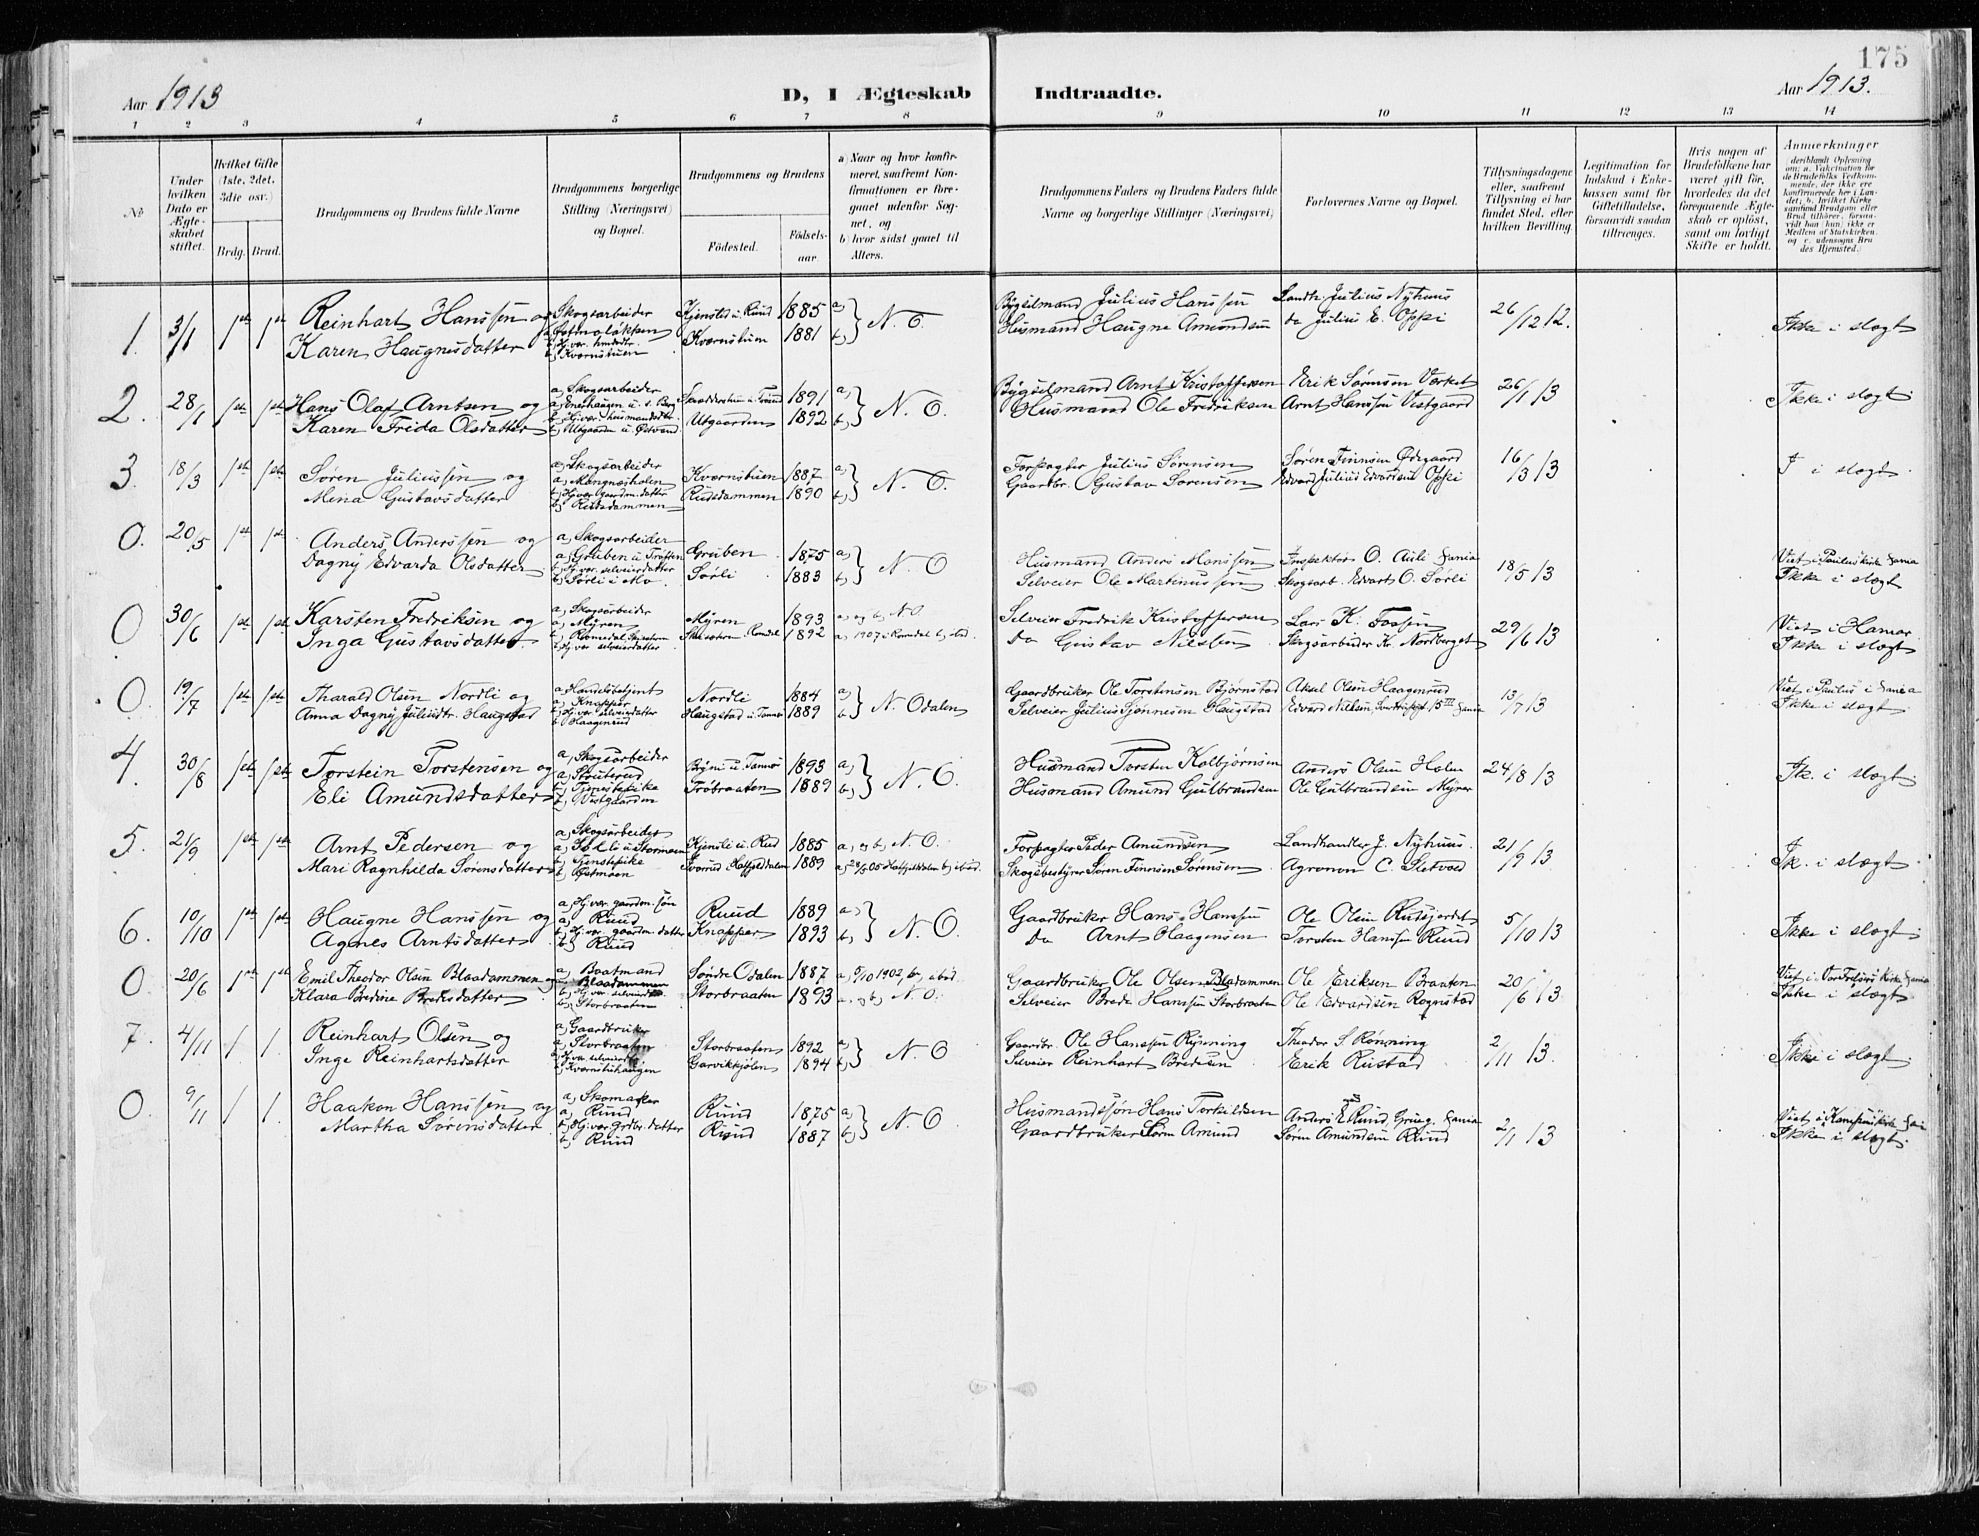 175
Aar 1913
D, I Ægteskab Indtraadte.
Aar 1913.
1 2 3 4 5 6 7 8 9 10 11 12 13 14
№
Under hvilken Dato er Ægteskabet stiftet.
Hvilket Gifte (1ste, 2det, 3die osv.)
Brdg. Brud.
Brudgommens og Brudens fulde Navne
Brudgommens borgerlige Stilling (Næringsvei) og Bopæl.
Brudgommens og Brudens
Födested. Födsels-aar.
a) Naar og hvor konfirmeret, saafremt Konfirmationen er foregaaet udenfor Sognet, og
b) hvor sidst gaaet til Alters.
Brudgommens Faders og Brudens Faders fulde Navne og borgerlige Stillinger (Næringsvei)
Forlovernes Navne og Bopæl.
Tillysningsdagene eller, saafremt Tillysning ei har fundet Sted, efter hvilken Bevilling.
Legitimation for Indskud i Enkekassen samt for Giftetilladelse, forsaavidt saadan tiltrænges.
Hvis nogen af Brudefolkene har været gift för, hvorledes da det foregaaende Ægteskab er oplöst, samt om lovligt Skifte er holdt.
Anmerkninger
1. 3/1 1ste 1ste Reinhart Hanssen og
Karen Haugnesdatter
Skogsarbeider
b) Kvernstuen
Kjenstad u. Ruud 1885 a)
Kvernstuen 1881 b)
N. O.
Bygselmand Julius Hanssen
Husmand Haugne Amundsen
Landh. Julius Nyhuus
do Julius E. Oppi
26/12 12.
Ikke i slægt
2. 28/1 1ste 1ste Hans Olaf Arntsen og
Karen Frida Olsdatter
a) Skogsarbeider
b) Utgaarden u. Østvand
1891 a)
Utgaarden 1892 b)
N. O.
Bygselmand Arnt Kristoffersen
Husmand Ole Fredriksen
Erik Sørensen Værket
Arnt Hanssen Vestgaard
26/1 13
Ikke i slægt
3. 18/3 1ste 1ste Søren Juliussen og
Mena Gustavsdatter
a) Skogsarbeider
a) Mengnesholen
b) Hj.vær. gaardm.datter
b) Rudsdammen
Kvernstuen 1887 a)
Rudsdammen 1890 b)
N. O.
Forpagter Julius Sørensen
Gaardbr. Gustav Sørensen
Søren Finnsen Ødegaard
Edvard Julius Edvardsen Oppi
16/3 13
I i slægt
0. 20/5 1ste 1ste Anders Anderssen og
Dagny Edvarda Olsdatter
a) Skogsarbeider
a) Gruben u. Trøften
b) Hj.vær. selveierdatter
b) Sørli i Mo
Gruben 1875 a)
Sørli 1883 b)
N. O
Husmand Anders Hanssen
Selveier Ole Martinussen
Inspektør O. Auli Xania
Skogsarb. Edvart O. Sørli
18/5 13
Viet i Paulus kirke Xania
Ikke i slægt
0 30/6 1ste 1ste Karsten Fredriksen og
Inga Gustavsdatter
a) Skogsarbeider
a) Myren
b) Hj.vær. selveierdatter
Myren 1893 a) og b) N.O.
1892 a) 1907 i Romedal b) ibid.
Selveier Fredrik Kristoffersen
Do Gustav Nilssen
Lars K. Fossen
Skogsarbeider Kr. Nordberget
29/6 13
Viet i Hamar
Ikke i slægt
0. 19/7 1ste 1ste Tharald Olsen Nordli og
Anna Dagny Juliusdtr. Haugstad
a) Handelsbetjent
a) Knapper
b) Hj.vær. selveierdatter
b) Haagenrud
Nordli 1884 a)
Haugstad u. Tannæs 1889 b)
N. Odalen
Gaardbruker Ole Torstensen Bjørnstad
Selveier Julius Sjønnesen Haugstad
Aksel Olsen Haagenrud
Edvard Nielsen, 15 III Xania
13/7 13
Viet i Paulus i Xania
Ikke i slægt
4. 30/8 1ste 1ste Torstein Torstensen og
Eli Amundsdatter
a) Skogsarbeider
a) Struterud
b) Tjenestepike
b) Vestgaarden
Bryni u. Tannæs 1893 a)
Trøbraaten 1889 b)
N. O.
Husmand Torsten Kolbjørnsen
Husmand Amund Gulbrandsen
Anders Olsen Holm
Ole Gulbrandsen Myrer
24/8 13
Ik. i slægt
5. 21/9 1ste 1ste Arnt Pedersen og
Mari Ragnhilda Sørensdatter
a) Skogsarbeider
b) Tjenstepike
b) Østmoen
Kjensli u. Rud 1885 a) og b) N. O.
Hatfjelddalen 1889 b) ibid.
Forpagter Peder Amundsen
Skogsbestyrer Søren Finnsen Sørensen
Landhandler J. Nyhuus
Agronom C. Sletvold
21/9 13
Ik. i slægt
6. 10/10 1ste 1ste Haugne Hanssen og
Agnes Arntsdatter
a) Hj.vær. gaardm.søn
a) Ruud
b) Hj.vær. gaardm.datter
b) Ruud
Ruud 1889 a)
Knapper 1893 b)
N. O.
Gaardbruker Hans Hanssen
Do Arnt Haagensen
Ole Olsen Rusfjordet
Torsten Hanssen Ruud
5/10 13
Ikke i slægt
0 20/6 1ste 1ste Emil Theodor Olsen Blaadammen og
Klara Bredine Bredesdatter
a) Baatmand
a) Blaadammen
b) Hj.vær. selveierdtr
b) Storbraaten
Søndre Odalen 1887 a) 5/10 1902, ibid
Storbraaten 1893 a) og b) N. O.
Gaardbruker Ole Olsen Bladammen
Selveier Brede Hanssen Storbraaten
Ole Eriksen Braaten
Ole Edvardsen Rognstad
20/6 13
Viet i Vor Frelsers Kirke Xania
Ikke i slægt
7. 4/11 1 1 Reinhart Olsen og
Inge Reinhartsdatter
a) Gaardbruker
a) Storbraaten
b) Hj.vær. selveierdtr
b) Kvernstuhaugen
Storbraaten 1892 a)
Garvikkjølen 1894 b)
N. O
Gaardbr. Ole Hanssen Rysning
Selveier Reinhart Bredesen
Theodor S Rønning
Erik Rustad
2/11 13
Ikke i slægt
0. 9/11 1 1 Haakon Hanssen og
Martha Sørensdatter
a) Skomaker
a) Ruud
b) Hj.vær. grdbr. datter
b) Ruud
Ruud 1875 a)
Ruud 1887 b)
N. O.
Husmandssøn Hans Torkildsen
Gaardbruker Søren Amund
Anders E Ruud, Xania
Søren Amundsen Ruud
2/1 13
Viet i Kampens kirke Xania
Ikke i slægt